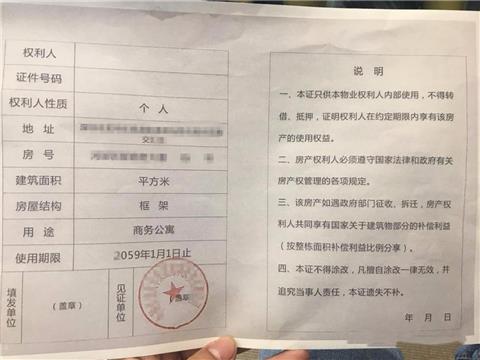 权利人
证件号码
权利人性质 个人
地址
交
房号
建筑面积 平方米
房屋结构 框架
用途 商务公寓
使用期限 2059年1月1日止
填发单位
（盖章）
见证单位
盖章
说明
一、本证只供本物业权利人内部使用，不得转
借、抵押，证明权利人在约定期限内享有该房
产的使用权益。
二、房产权利人必须遵守国家法律和政府有关
房产权管理的各项规定。
三、该房产如遇政府部门征收、拆迁，房产权
利人共同享有国家关于建筑物部分的补偿利益
（按整栋面积补偿利益比例分享）。
四、本证不得涂改，凡擅自涂改一律无效，并
追究当事人责任，本证遗失不补。
年 月 日